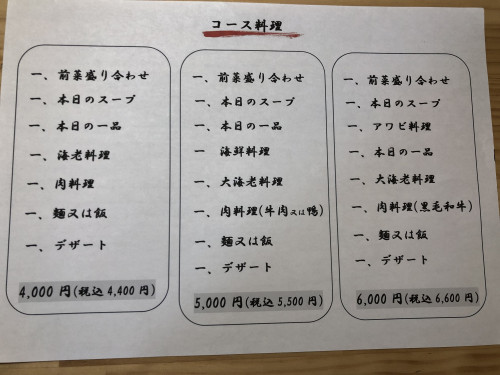 コース料理
一、前菜盛り合わせ
一、本日のスープ
一、本日の一品
一、海老料理
一、肉料理
一、麺又は飯
一、デザート
4,000 円(税込 4,400 円)
一、前菜盛り合わせ
一、本日のスープ
一、本日の一品
一 海鮮料理
一、大海老料理
一、肉料理(牛肉又は鴨)
一、麺又は飯
一、デザート
5,000 円(税込 5,500 円)
一、前菜盛り合わせ
一、本日のスープ
一、アワビ料理
一、本日の一品
一、大海老料理
一、肉料理(黒毛和牛)
一、麺又は飯
一、デザート
6,000 円(税込 6,600 円)